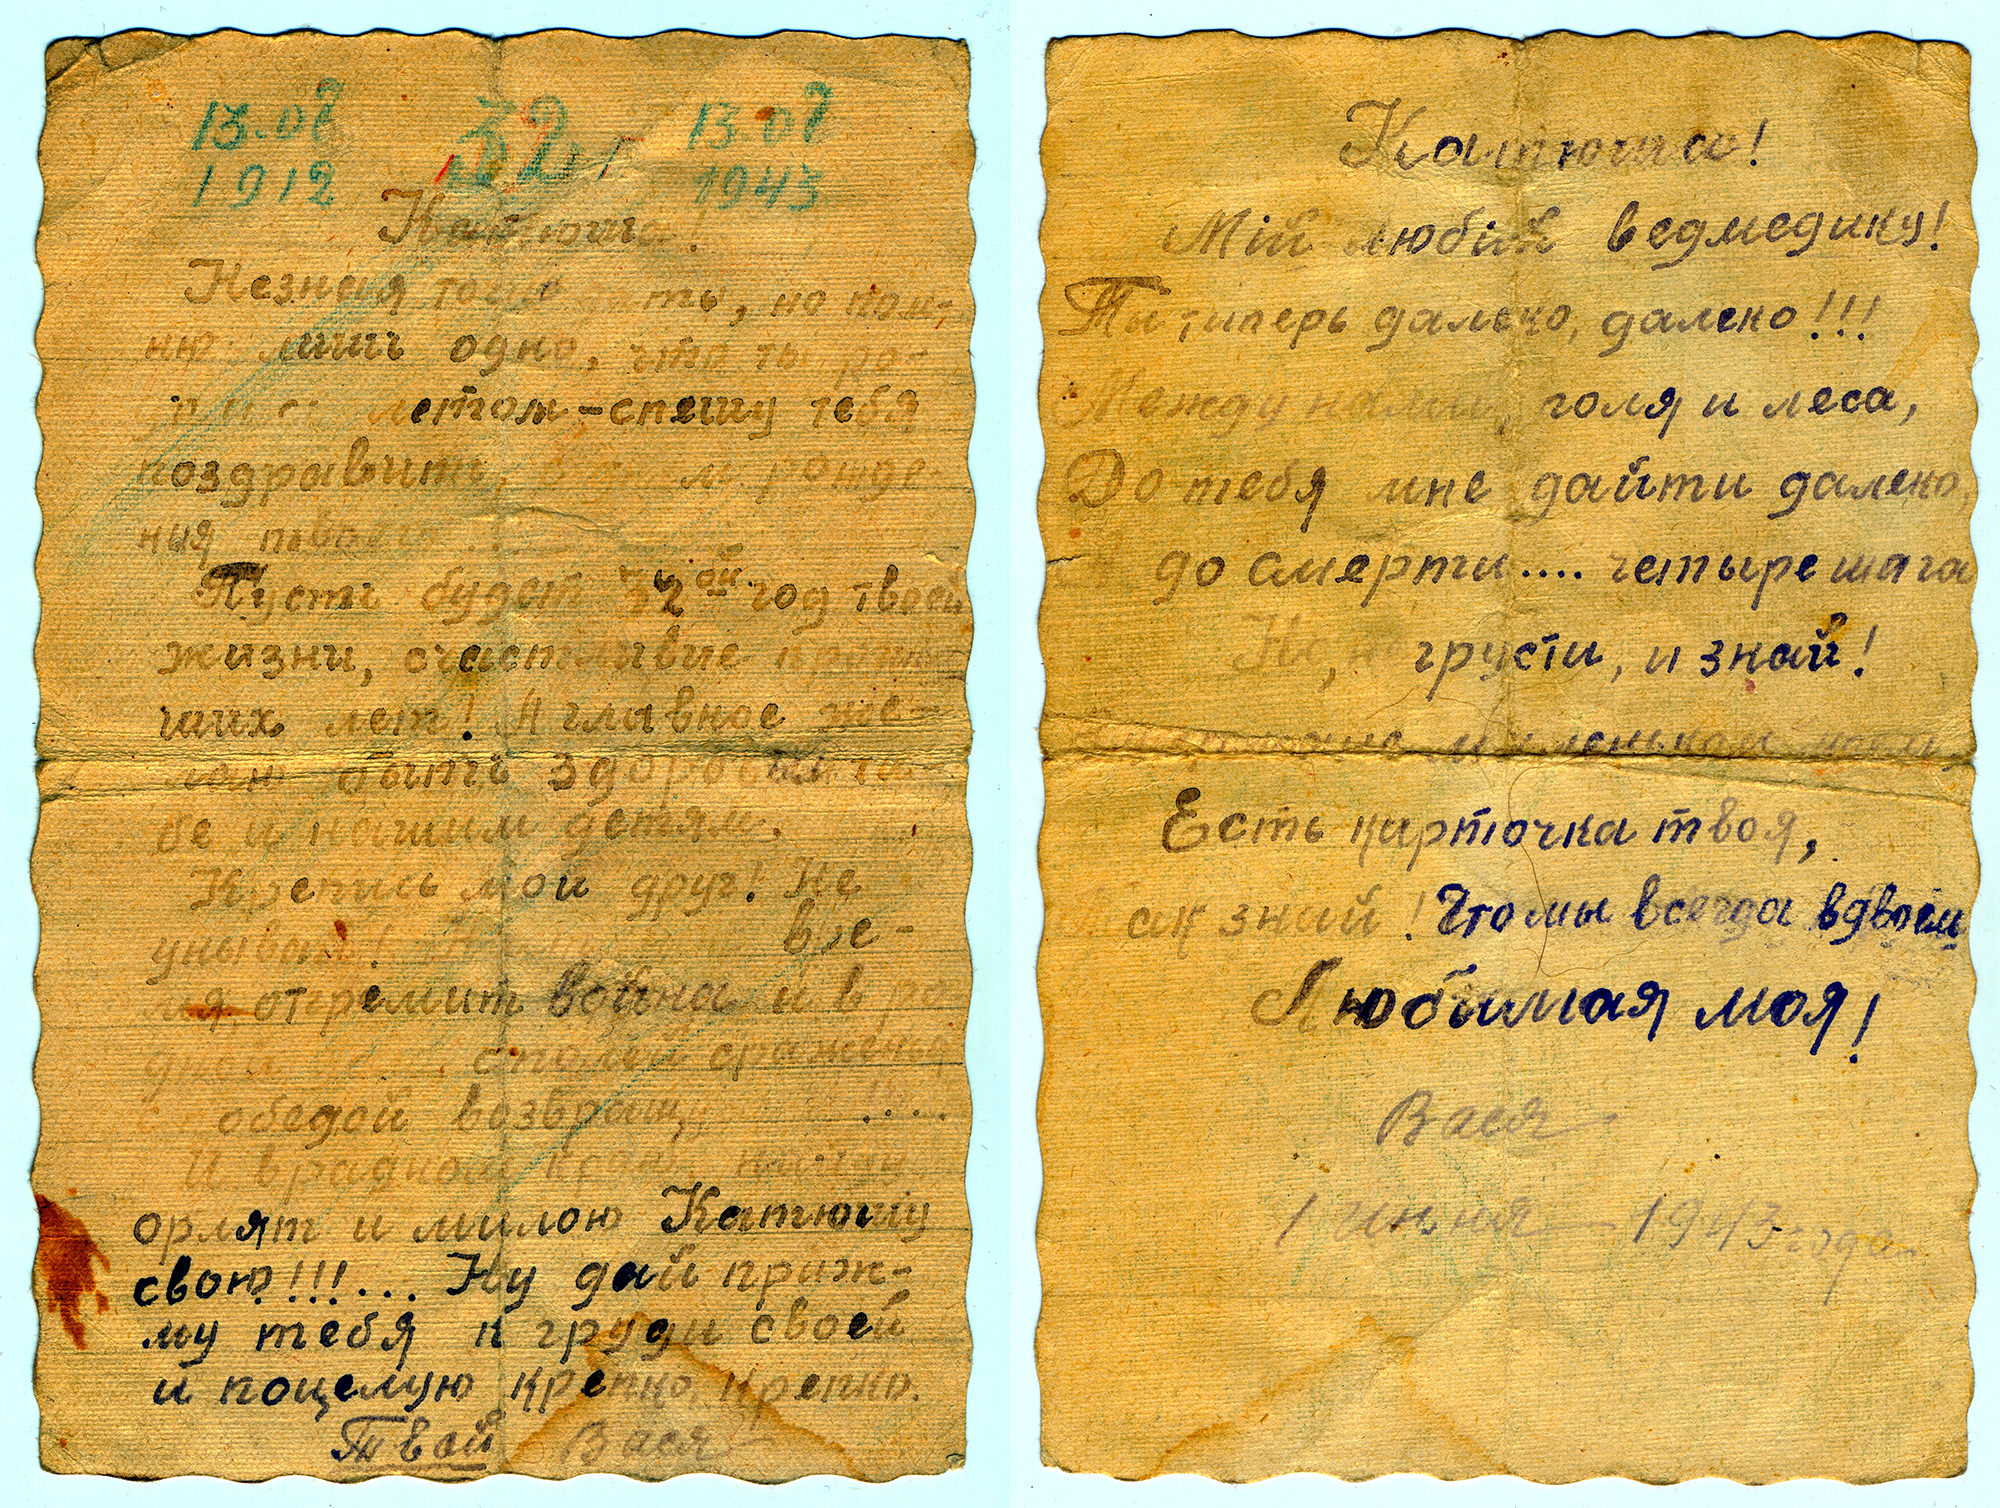 13.08 32 13.08
1912 1943
Катюша!
Незная точно даты, но пом-
ню лишь одно, что ты ро-
летом - спешу тебя
поздравить, рожде-
ния твоего...
Пусть будет 32ой год твоей
жизни, счастливие
ших лет! А главное же-
лаю быть здоровым те-
бе и нашим детям.
Крепись мой друг! Не
унывай! вре-
мя отгремит война и в ро
дном сраженья
победой возвращу ....
И в радном краю
орлят и милою Катюшу
свою!!!... Ну дай приж-
му тебя к груди своей
и поцелую крепко, крепко.
Твой Вася
Катюша!
Мій любій ведмедику!
Ты типерь далеко, далеко!!!
Между нами, поля и леса,
До тебя мне дайти далеко,
до смерти.... четыре шага
Не, грусти, и знай!
маленьком
Есть карточка твоя,
знай! Что мы всегда вдвоём
Любимая моя!
Вася
1 Июня - 1943 года